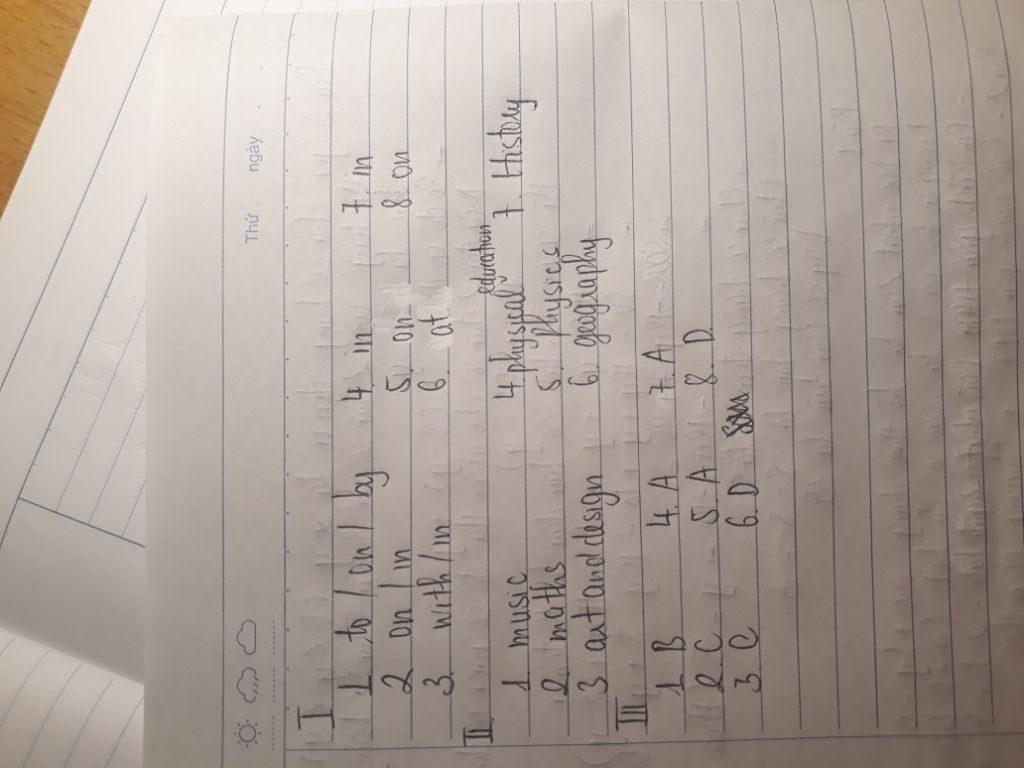 Thứ ngày
I
1. to / on / by 4. in 7. in
2 on / in 5. on 8 on
3. with / in 6. at
II
1. music 4 physical education 7. History
2. maths 5. physics
3 art and design 6. geography
III
1. B 4. A 7. A
2. C 5. A 8. D
3. C 6. D